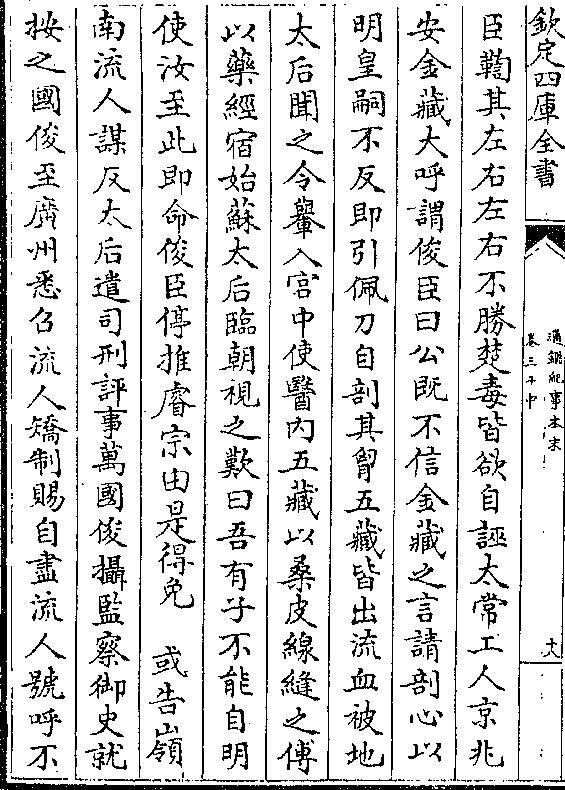 欽定四庫全書
通鑑紀事本末
卷三十中
十八
臣鞫其左右左右不勝楚毒皆欲自誣太常工人京兆
安金藏大呼謂俊臣曰公既不信金藏之言請剖心以
明皇嗣不反即引佩刀自剖其胷五藏皆出流血被地
太后聞之令轝入宮中使醫内五藏以桑皮線縫之傅
以藥經宿始蘇太后臨朝視之歎曰吾有子不能自明
使汝至此即命俊臣停推睿宗由是得免　或告嶺
南流人謀反太后遣司刑評事萬國俊攝監察御史就
按之國俊至廣州悉召流人矯制賜自盡流人號呼不